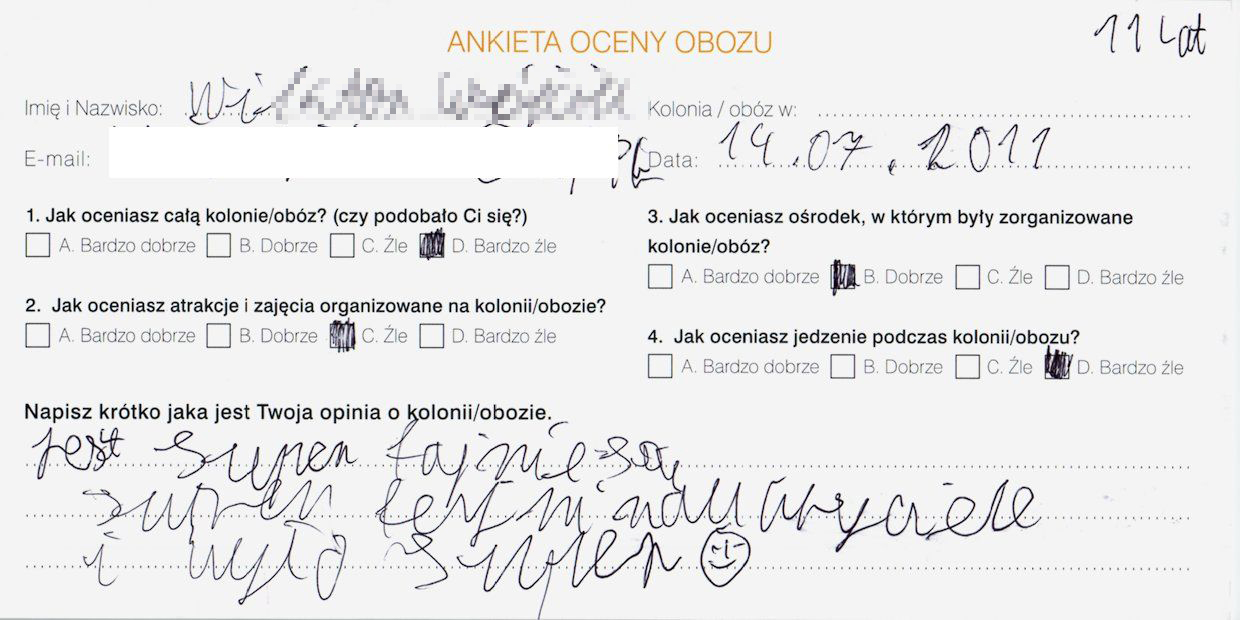 ANKIETA OCENY OBOZU
11 Lat
Imię i Nazwisko: Wi
Kolonia / obóz w:
E-mail:
Data: 14.07.2011
1. Jak oceniasz całą kolonie/obóz? (czy podobało Ci się?)
A. Bardzo dobrze B. Dobrze C. Źle D. Bardzo źle
2. Jak oceniasz atrakcje i zajęcia organizowane na kolonii/obozie?
A. Bardzo dobrze B. Dobrze C. Źle D. Bardzo źle
3. Jak oceniasz ośrodek, w którym były zorganizowane
kolonie/obóz?
A. Bardzo dobrze B. Dobrze C. Źle D. Bardzo źle
4. Jak oceniasz jedzenie podczas kolonii/obozu?
A. Bardzo dobrze B. Dobrze C. Źle D. Bardzo źle
Napisz krótko jaka jest Twoja opinia o kolonii/obozie.
jest super fajnie są
super fajni
i super